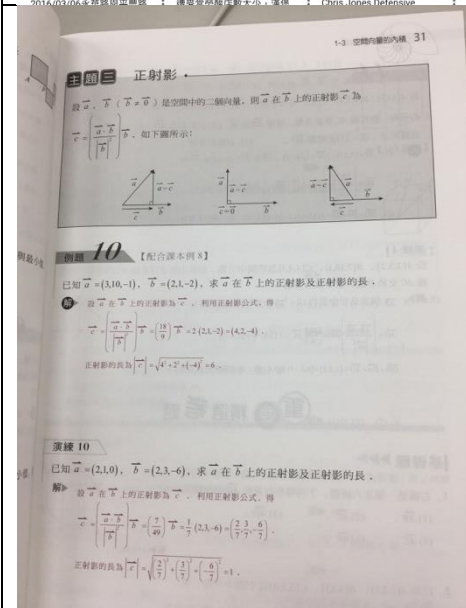 2016/03/06永福路與中豐路
Chris Jones Defensive
1-3 空間向量的內積 31
主題三 正射影
設 a⃗，b⃗（b⃗≠0⃗）是空間中的二個向量，則 a⃗ 在 b⃗ 上的正射影 c⃗ 為
c⃗ = (a⃗·b⃗ / |b⃗|²) b⃗，如下圖所示：
a⃗ a⃗−c⃗ c⃗ b⃗
a⃗ a⃗−c⃗ c⃗=0⃗ b⃗
a⃗−c⃗ a⃗ b⃗ c⃗
例題 10 【配合課本例 8】
已知 a⃗ = (3,10,−1)，b⃗ = (2,1,−2)，求 a⃗ 在 b⃗ 上的正射影及正射影的長．
解 設 a⃗ 在 b⃗ 上的正射影為 c⃗，利用正射影公式，得
c⃗ = (a⃗·b⃗ / |b⃗|²) b⃗ = (18/9) b⃗ = 2 (2,1,−2) = (4,2,−4)．
正射影的長為 |c⃗| = √(4²+2²+(−4)²) = 6．
演練 10
已知 a⃗ = (2,1,0)，b⃗ = (2,3,−6)，求 a⃗ 在 b⃗ 上的正射影及正射影的長．
解 設 a⃗ 在 b⃗ 上的正射影為 c⃗，利用正射影公式，得
c⃗ = (a⃗·b⃗ / |b⃗|²) b⃗ = (7/49) b⃗ = 1/7 (2,3,−6) = (2/7, 3/7, −6/7)．
正射影的長為 |c⃗| = √((2/7)²+(3/7)²+(−6/7)²) = 1．